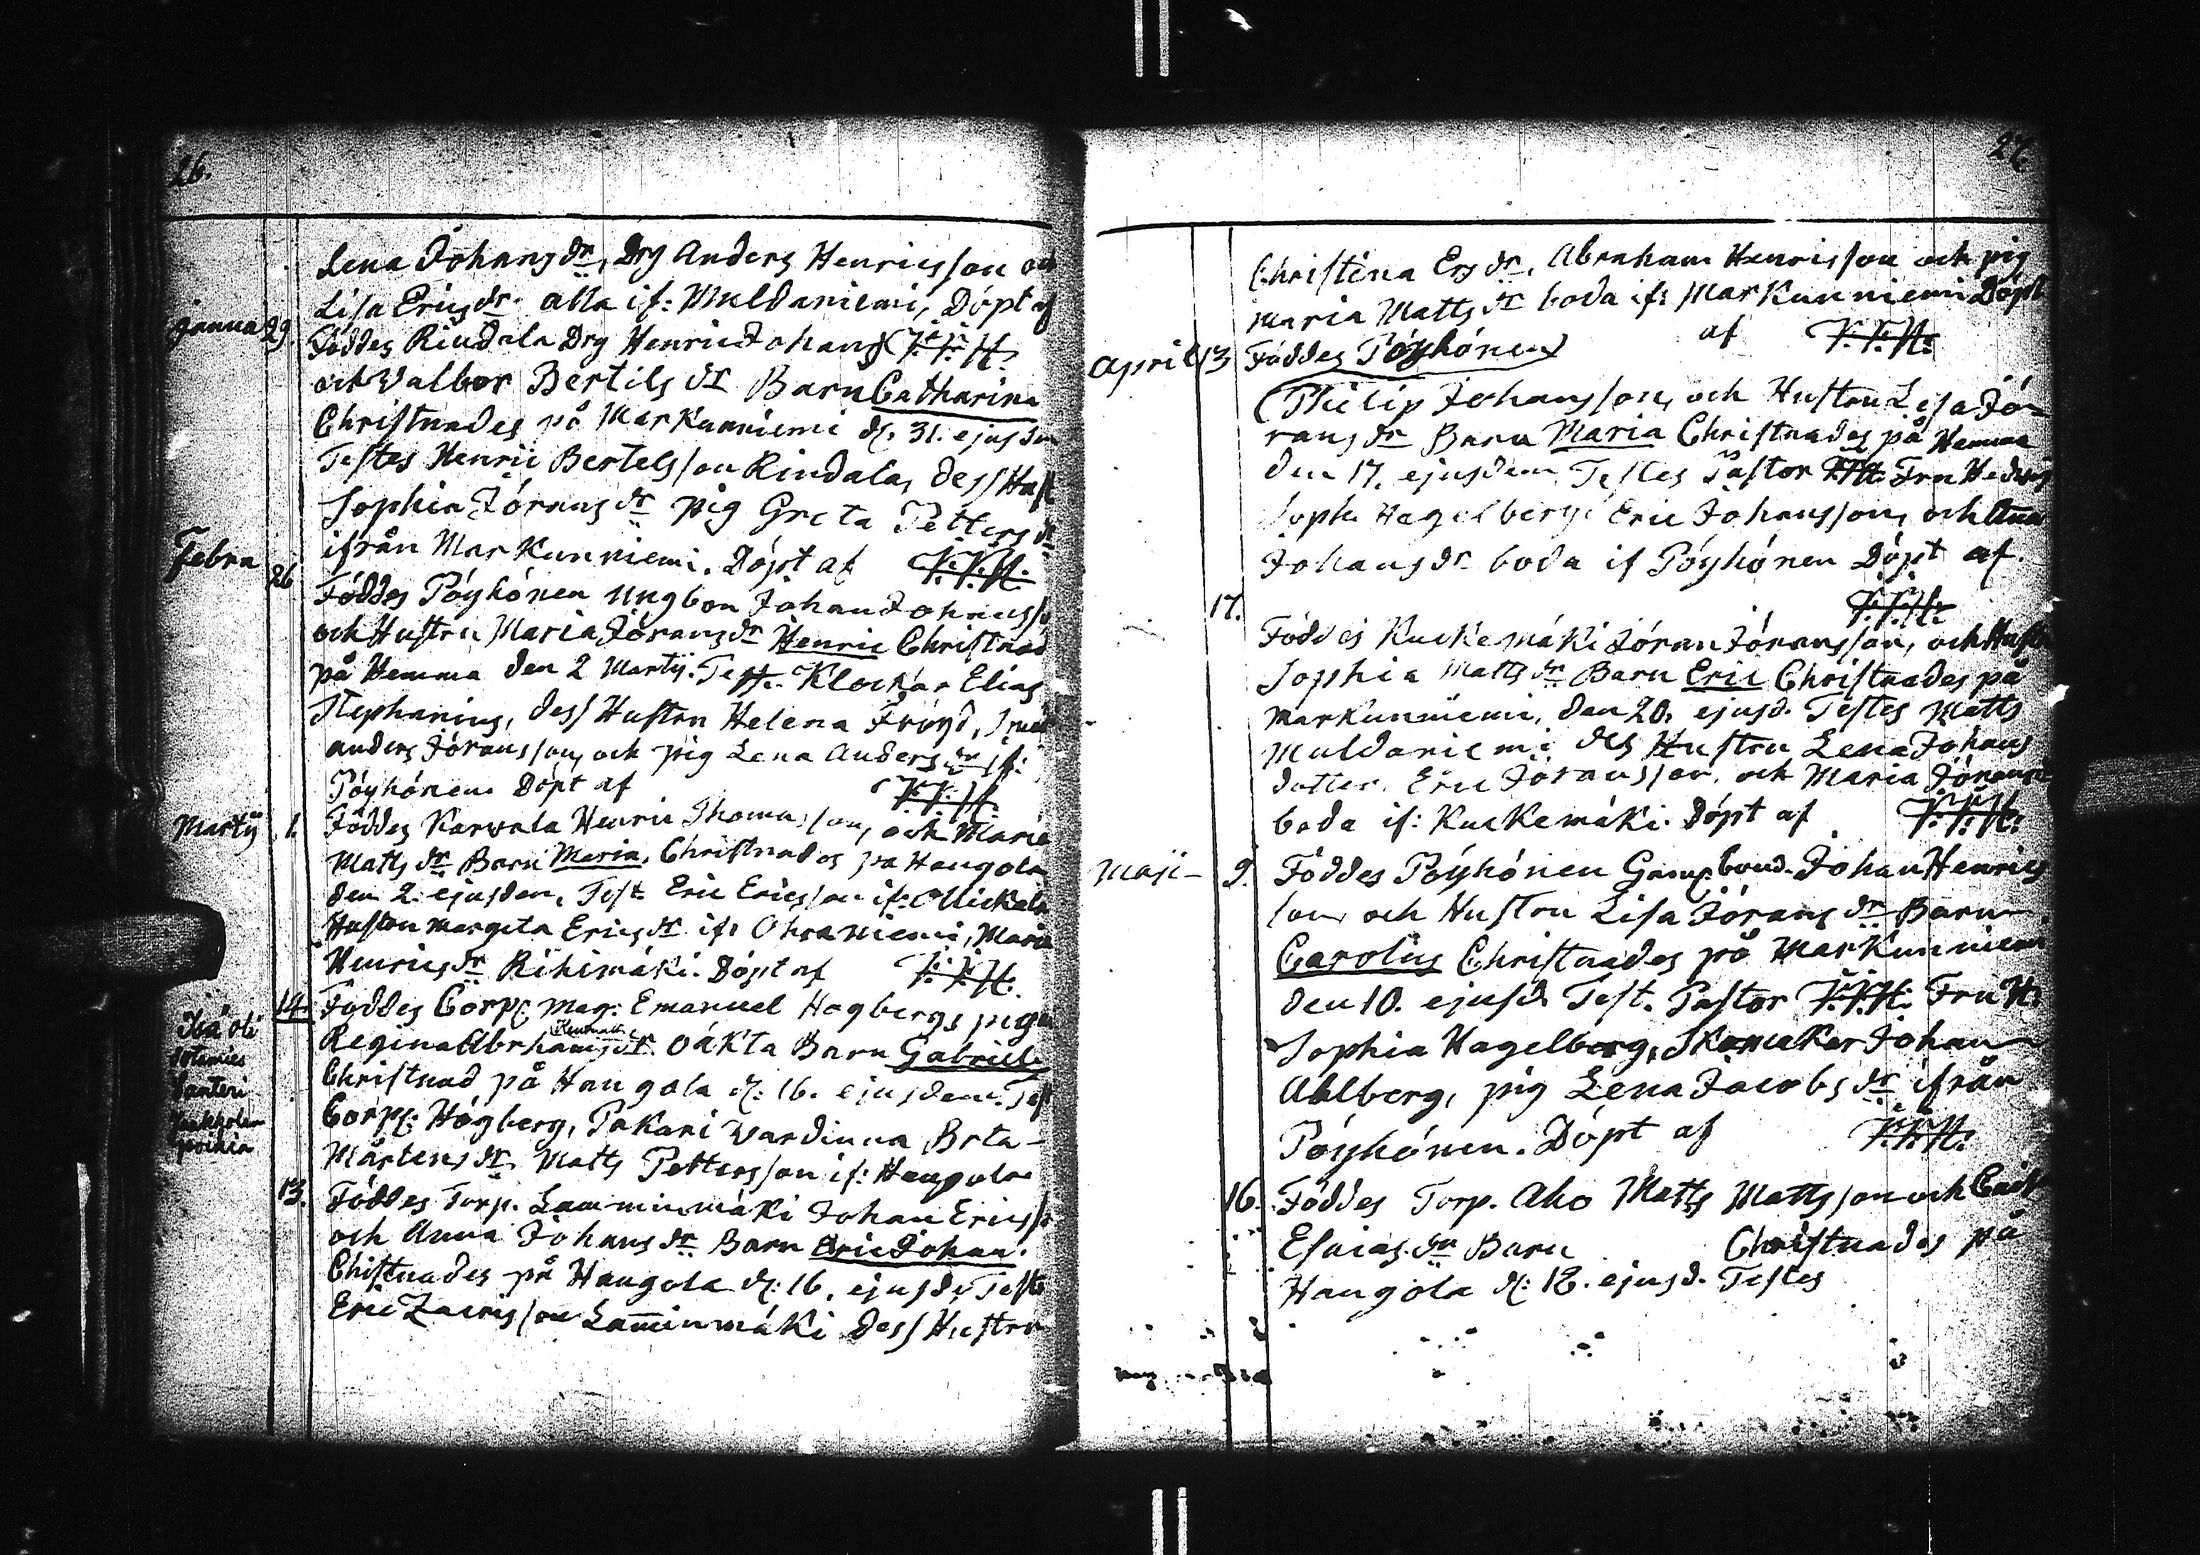 26.
Lena Johans dr, Drg Anders Henricsson och
Lisa Erics dr. alla if: Muldaniemi, Döpt af
Janua 29. Föddes Rindala Drg Henric Johans F.F.H.
och Walbor Bertils dr Barn Catharina
Christnades på Markunniemi d: 31. ejusdem
Testes Henric Bertelsson Rindala, dess Hust
Sophia Jörans dr pig Greta Petters dr
ifrån Markunniemi. Döpt af F.F.H.
Febru 26 Föddes Pöyhönen Ungbon Johan Johansso
och Hustru Maria Jörans dr Henric Christnad
på Hemma den 2 Martij. Test. Klockar Elias
Stephanius, dess Hustru Helena Fröyd,
anders Jöransson, och pig Lena Anders dr if:
Pöyhönen Döpt af F.F.H.
Martij 1. Föddes Karvala Henric Thomasson, och Maria
Matts dr Barn Maria, Christnades på Hangola
den 2. ejusdem, Test. Eric Ericsson if: Mickala
Hustru Margeta Erics dr if: Ohraniemi, Maria
Henrics dr Rihimäki. Döpt af F.F.H.
14. Föddes Corpl: Mag: Emanuel Hagbergs piga
Regina Abrhams dr oäkta Barn Gabriel
Christnad på Hangola d: 16. ejusdem. Test
Corpl: Högberg, Pakari Wardinna Brta
Mårtens dr Matts Pettersson if: Hangola
Isä oli
sotamies
Santeri
poikia
13. Föddes Torp. Lamminmäki Johan Ericss
och Anna Johans dr Barn Eric Johan.
Chistnades på Hangola d: 16. ejusd: Test
Eric Zacrisson Lam̄inmäki dess Hustru
27.
Christina Ers dr, Abraham Henrisson och pig
Maria Matts dr boda if: Markunniemi Döpt
af F.F.H.
April 13 Föddes Pöyhönen
Philip Johansson, och Hustru Lisa Jö-
rans dr Barn Maria Christnades på Hemma
den 17. ejusdem Testes Pastor F.F.H. Fru Hedvig
Soph. Hagelberg, Eric Johansson, och Anna
Johans dr boda if Pöyhönen Döpt af.
F.F.H.
17. Föddes Kuckemäki Jöran Jöransson, och Hust
Sophia Matts dr Barn Eric Christnades på
Markunniemi, den 20. ejusd. Testes Matts
Muldaniemi des Hustru Lena Johans
dotter, Eric Jöransson, och Maria Jörans
boda if: Kuckemäki. Döpt af F.F.H.
Maji 9. Föddes Pöyhönen Gamp. bond. Johan Henrics
son och Hustru Lisa Jörans dr Barn
Carolus Christnades på Markunniemi
den 10. ejusd. Test. Pastor F.F.H. Fru H:
Sophia Hagelberg, Skomaker Johan
Ahlberg, pig Lena Jacobs dr ifrån
Pöyhönen. Döpt af F.F.H.
16. Föddes Torp. Aho Matts Mattsson och
Esaias dr Barn Christnades på
Hangola d: 18. ejusd. Testes